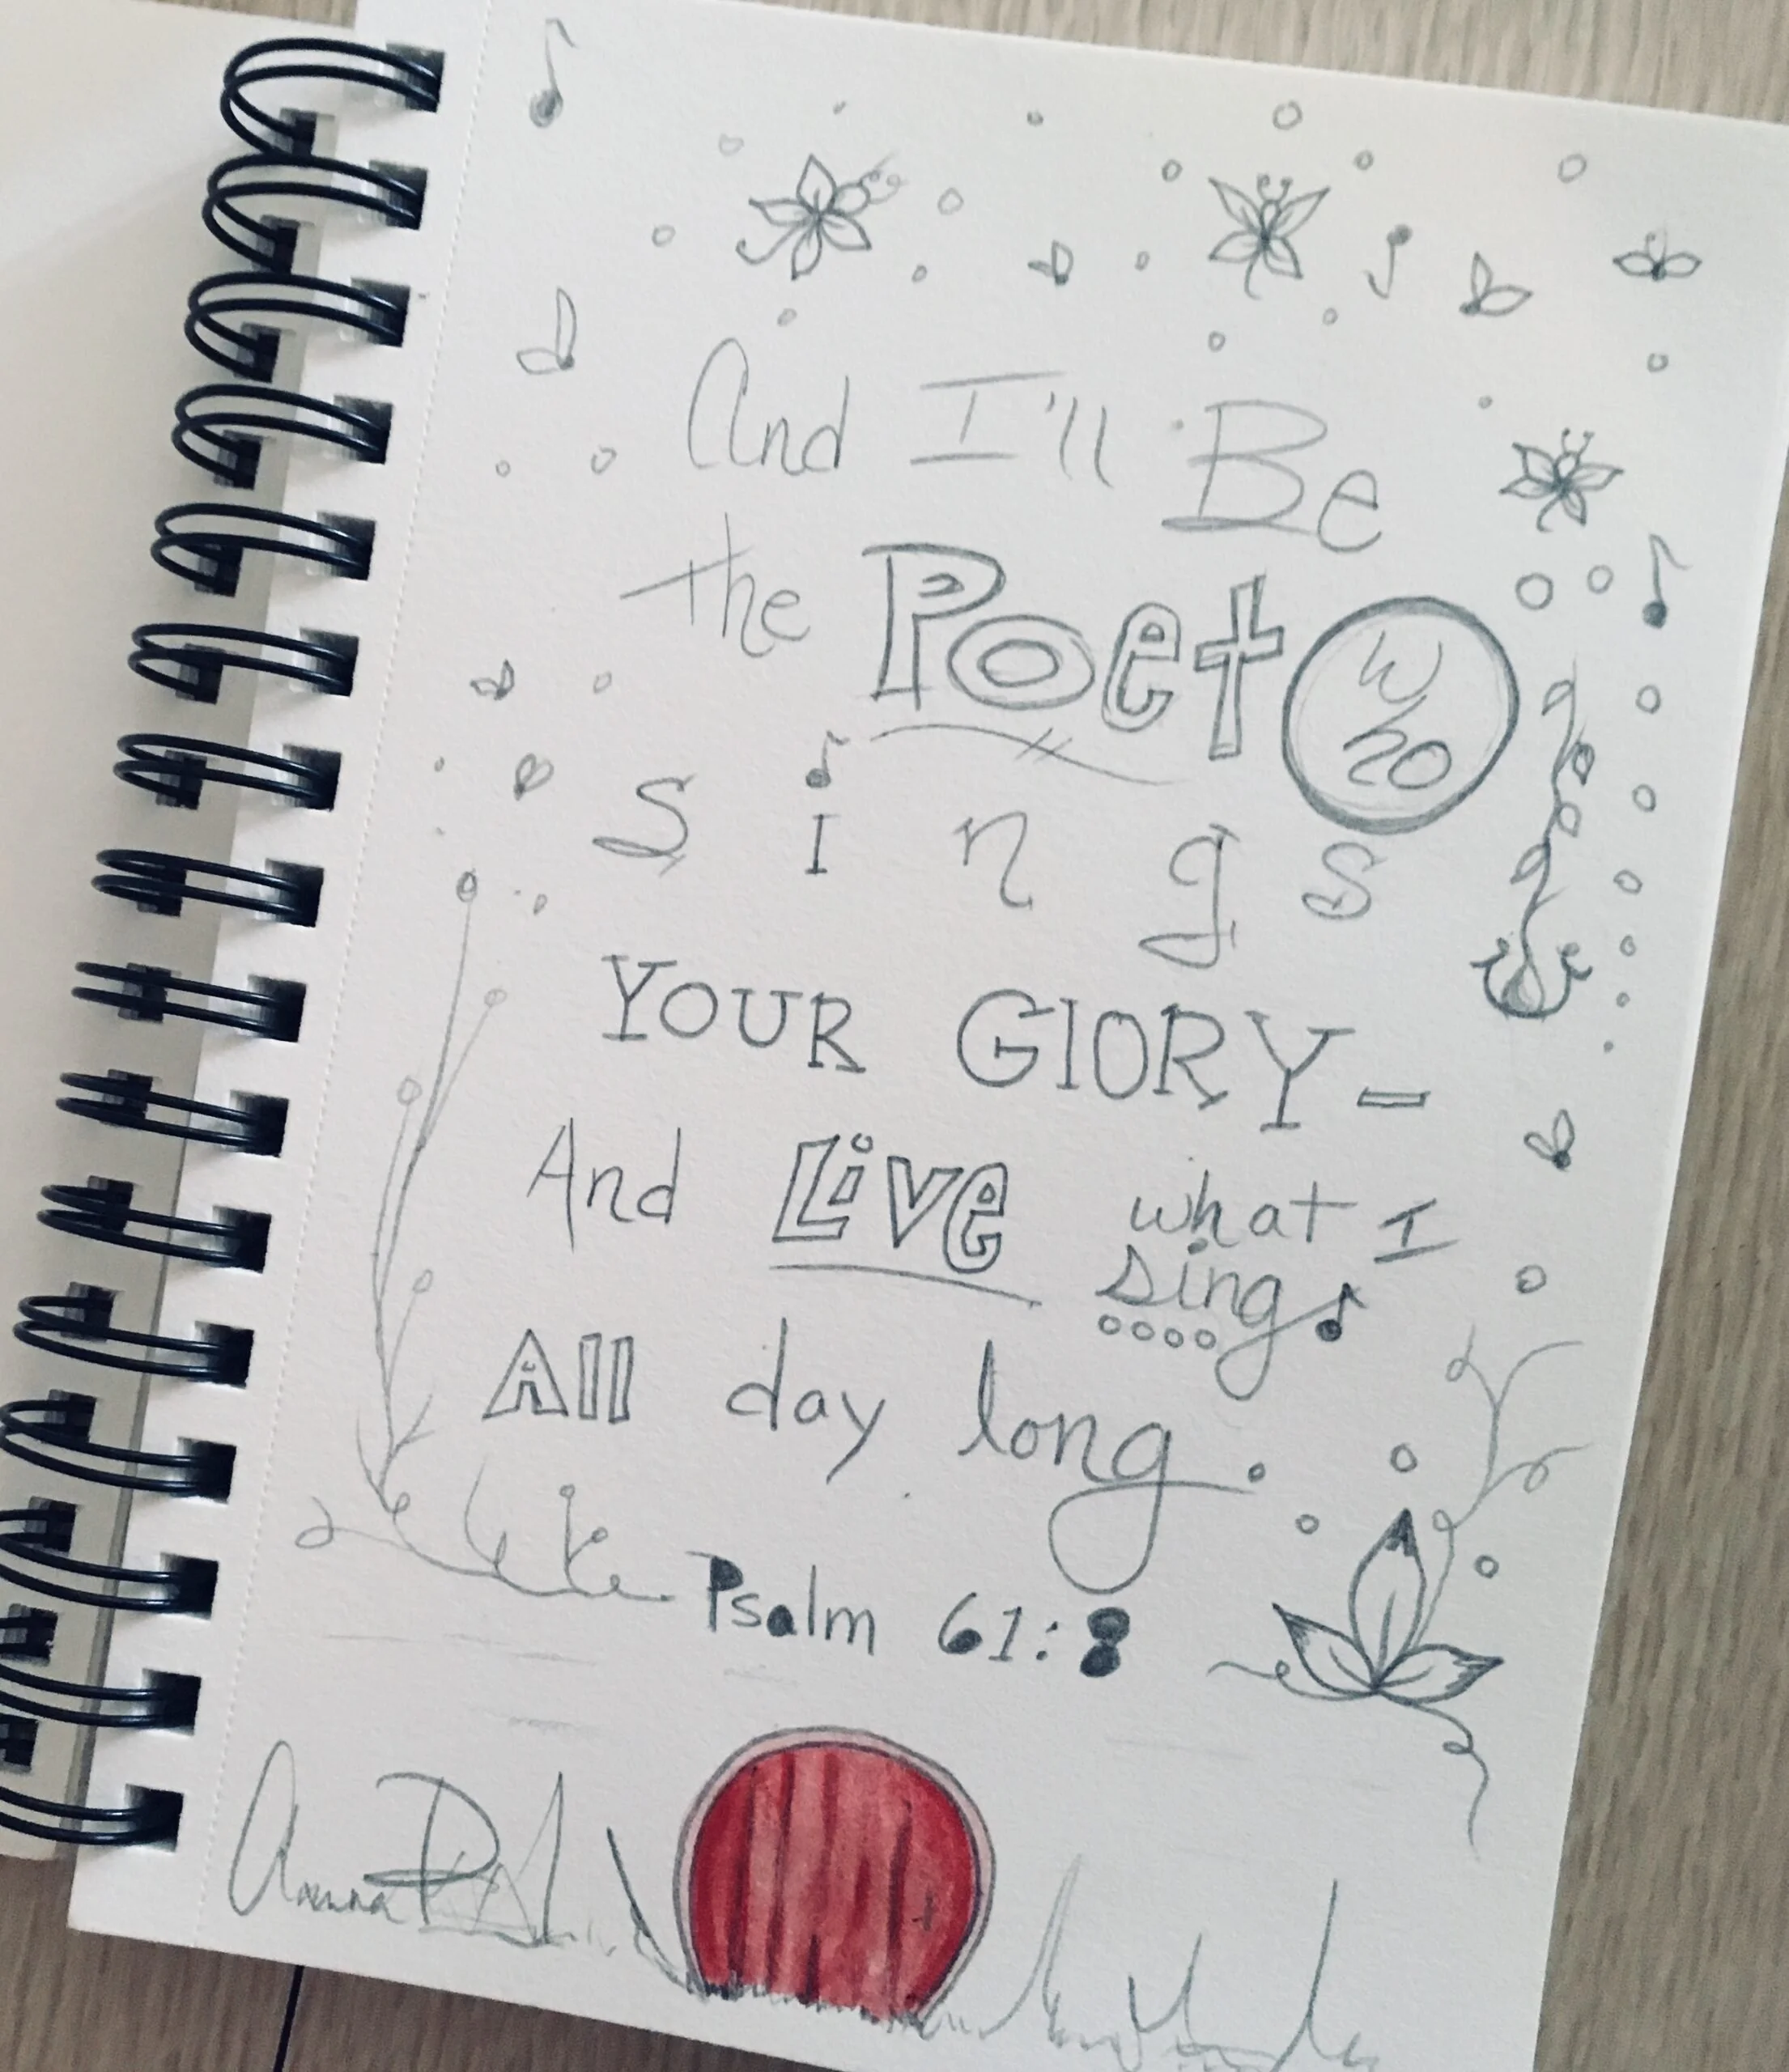 And I'll Be
the Poet Who
sIngs
YOUR GlORY-
And Live what I
sing
All day long.
Psalm 61:8
Anna